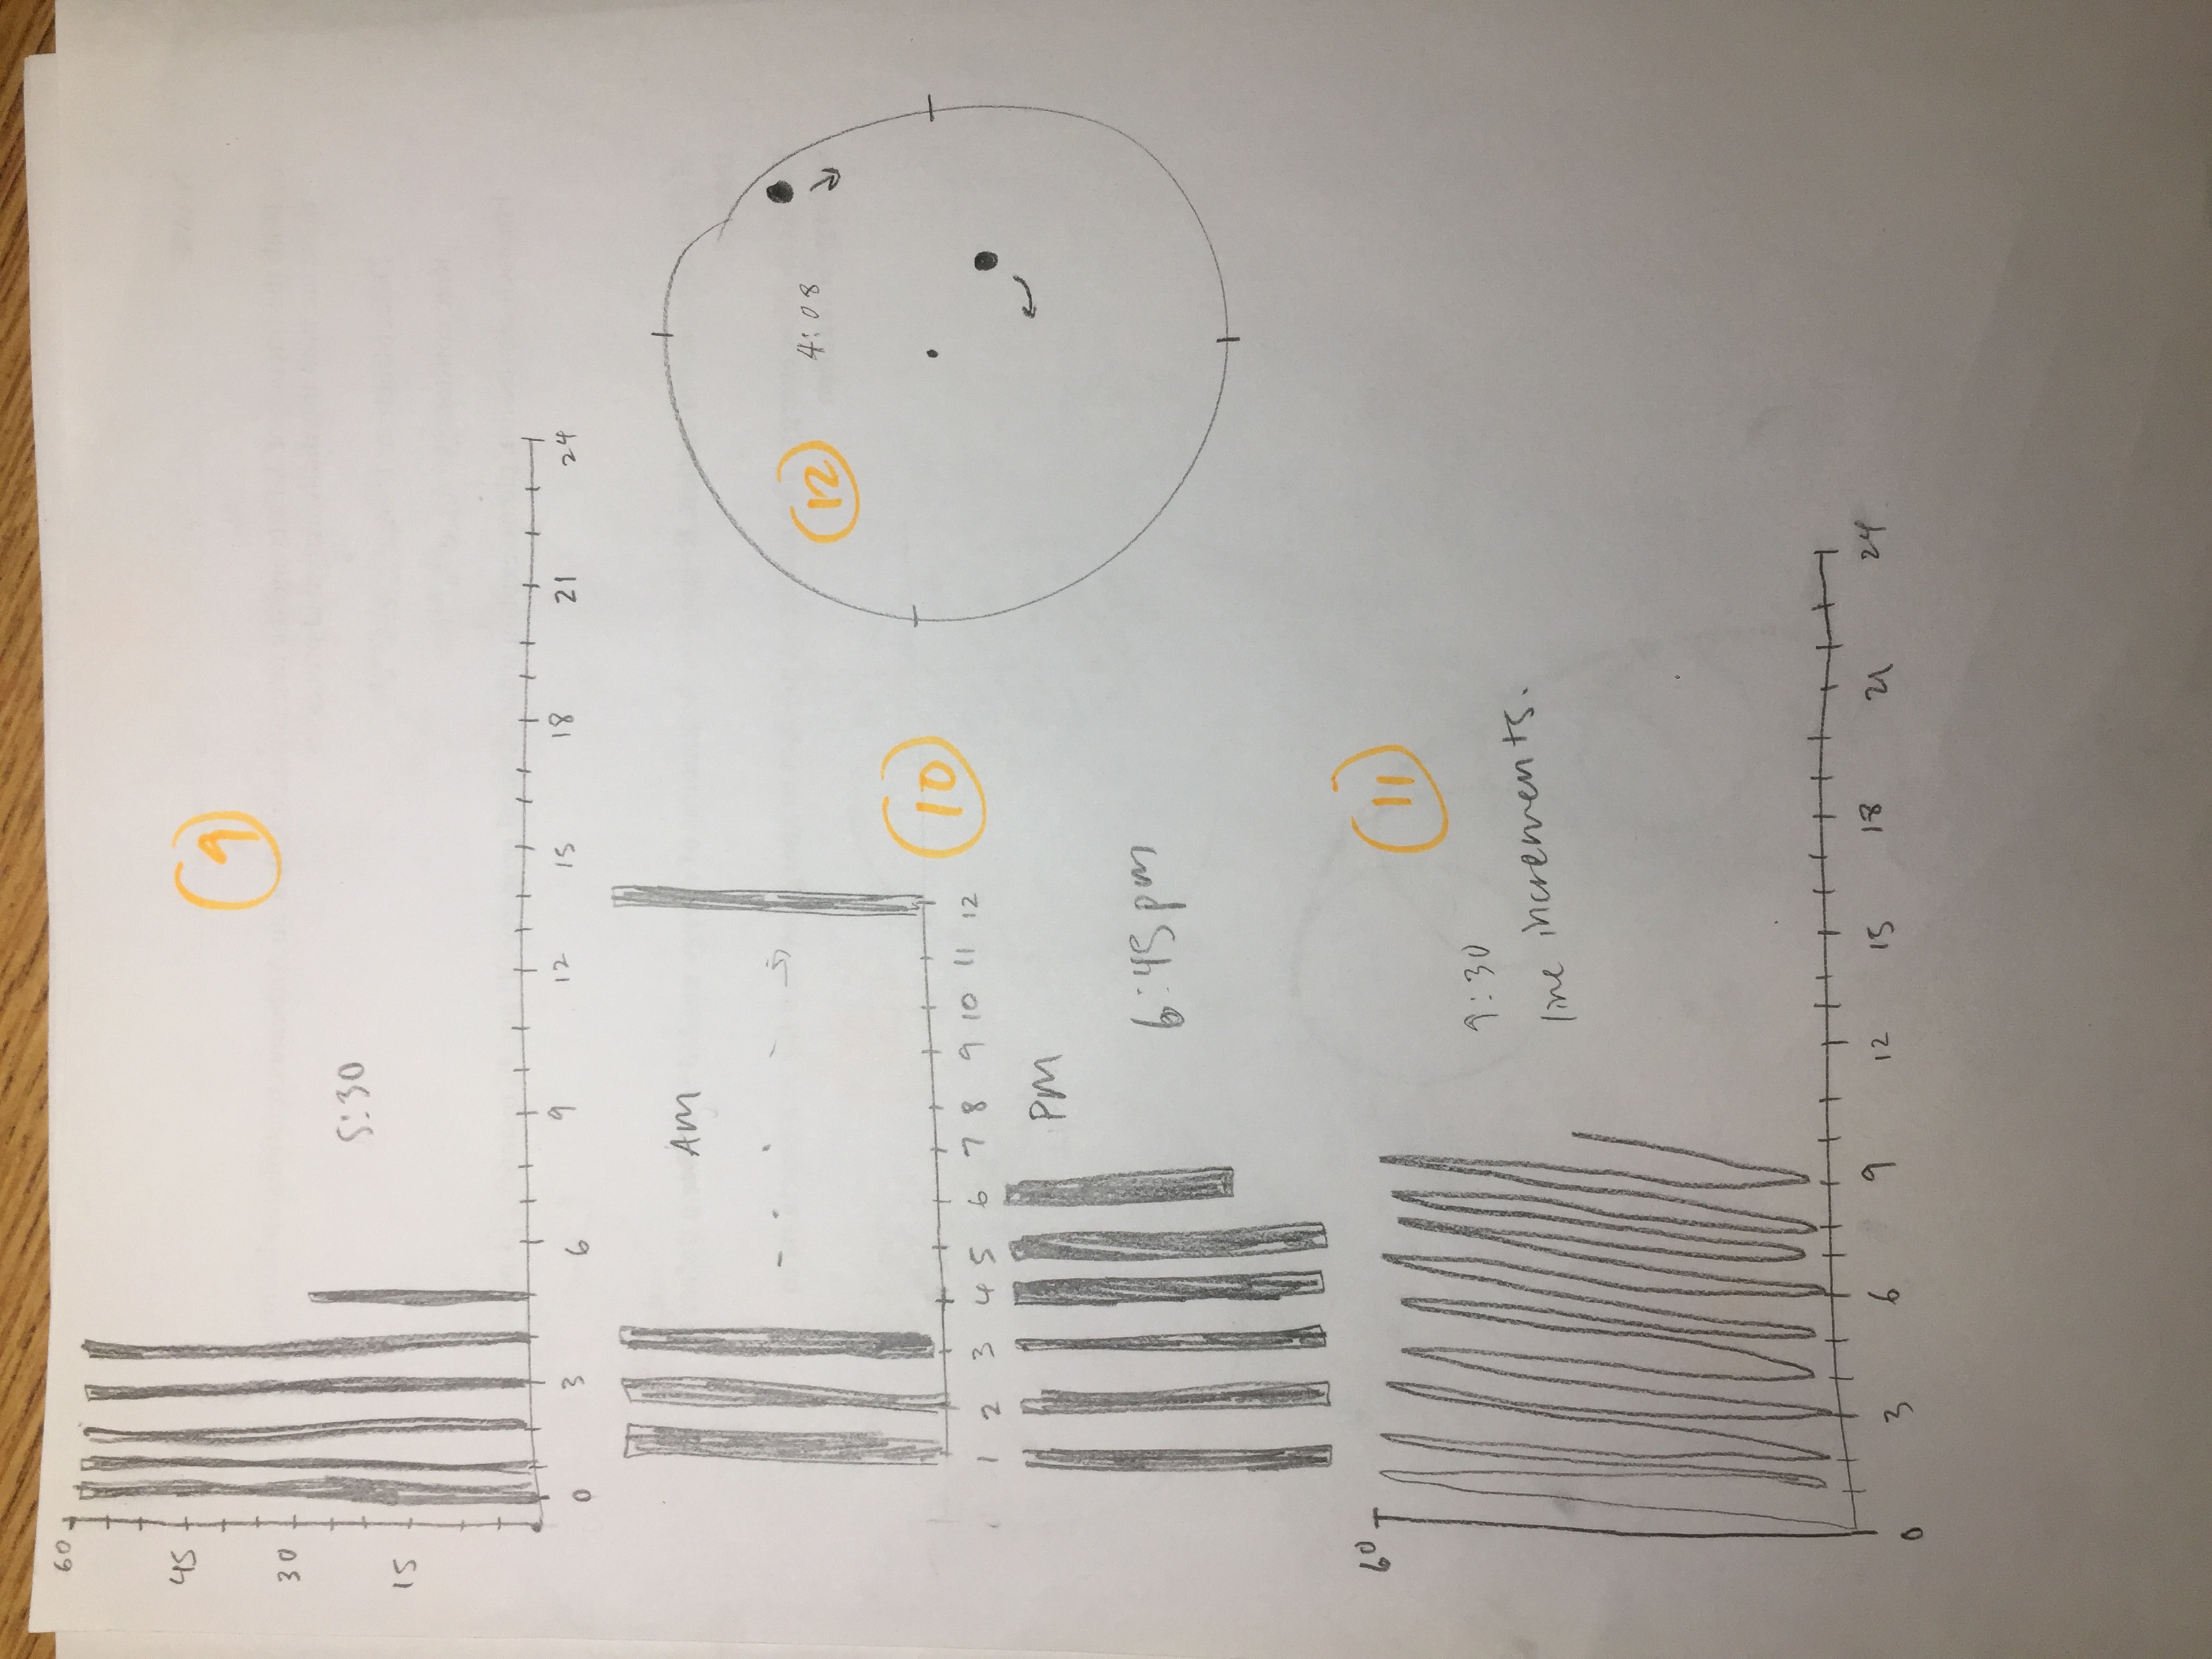 60
45
30
15
9
5:30
0 3 6 9 12 15 18 21 24
AM
10
1 2 3 4 5 6 7 8 9 10 11 12
PM
6:45pm
12
4:08
60
11
9:30
line increments.
0 3 6 9 12 15 18 21 24
NAME